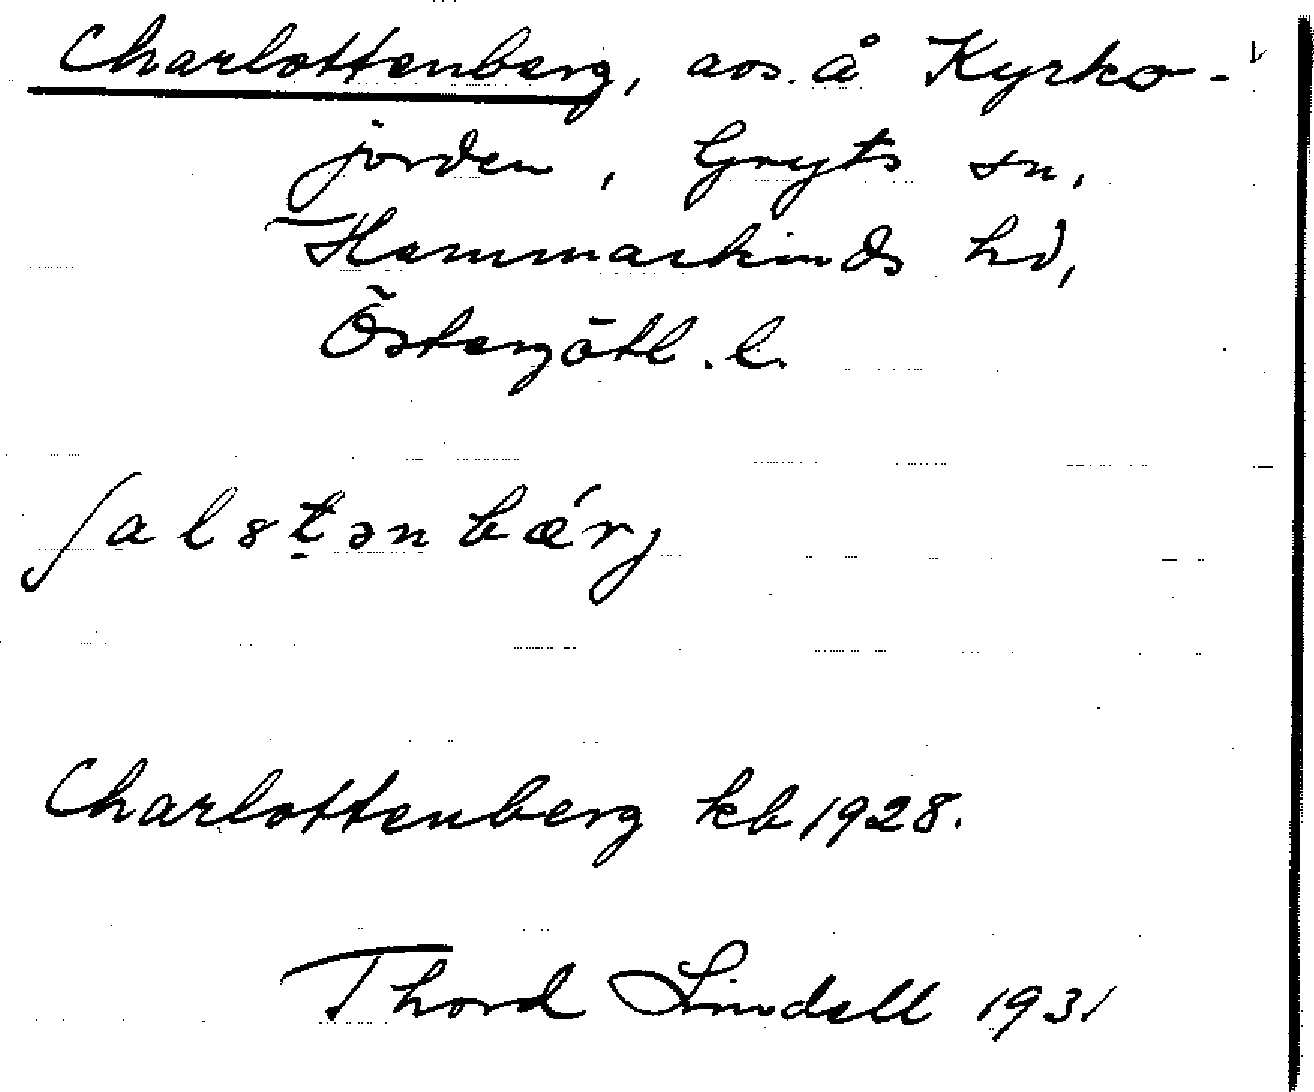 Charlottenberg, avs. å Kyrko-
jorden, Gryts sn,
Hammarkinds hd,
Östergötl. l.
ʃalsṭənbǽrj
Charlottenberg kb 1928.
Thord Lindell 1931